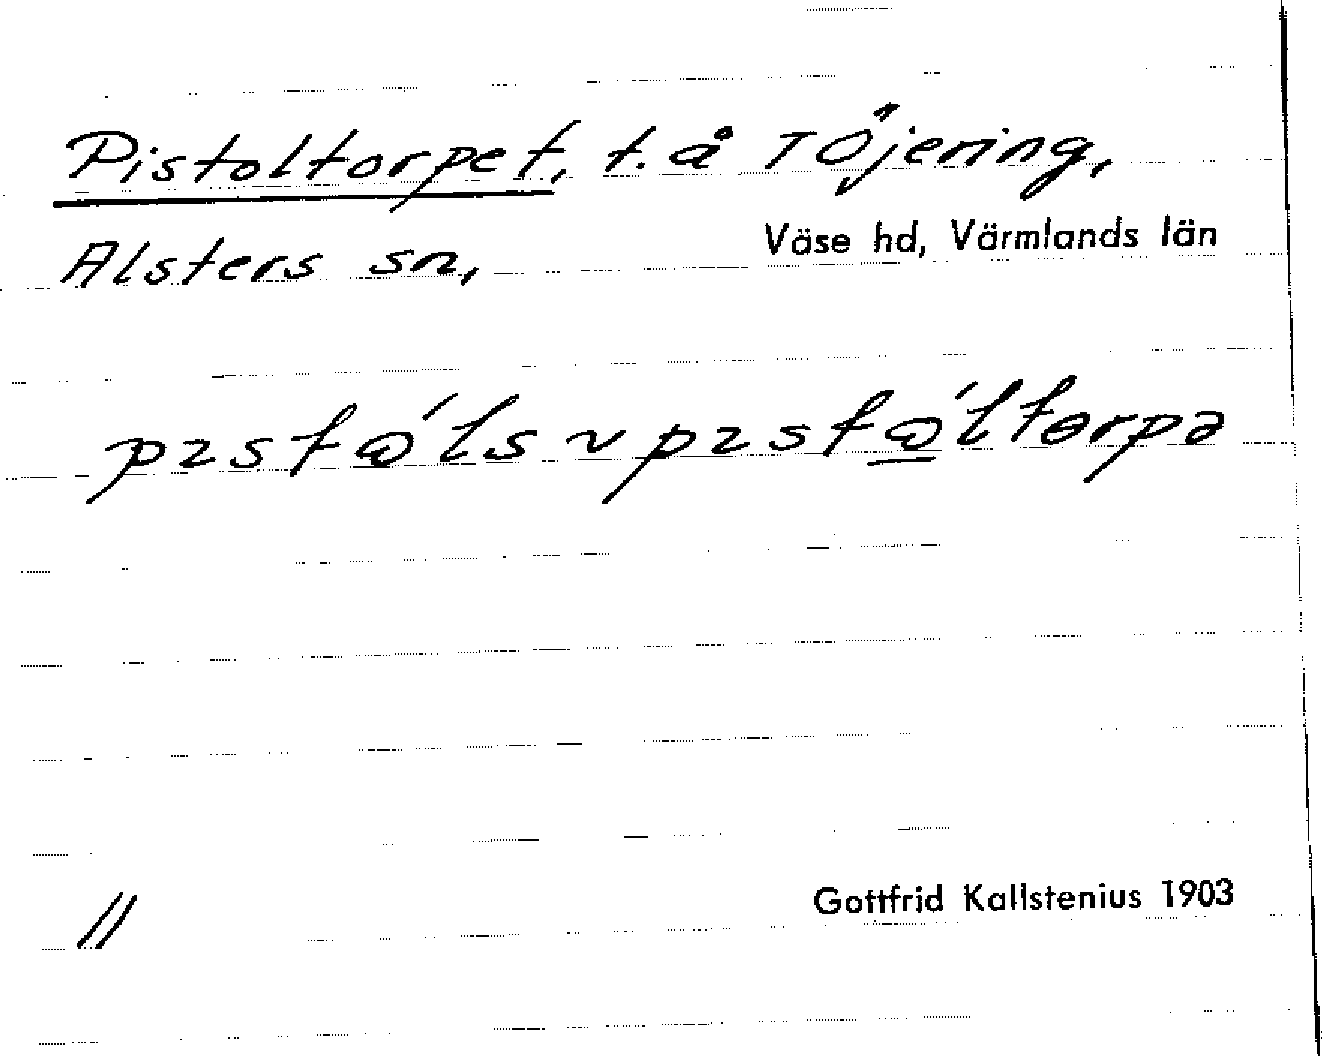 Pistoltorpet, t. å Töjering,
Alsters sn,
Väse hd, Värmlands län
pɪstɷ́ls ~ pɪstɷ̲́ltɵrpə
//
Gottfrid Kallstenius 1903